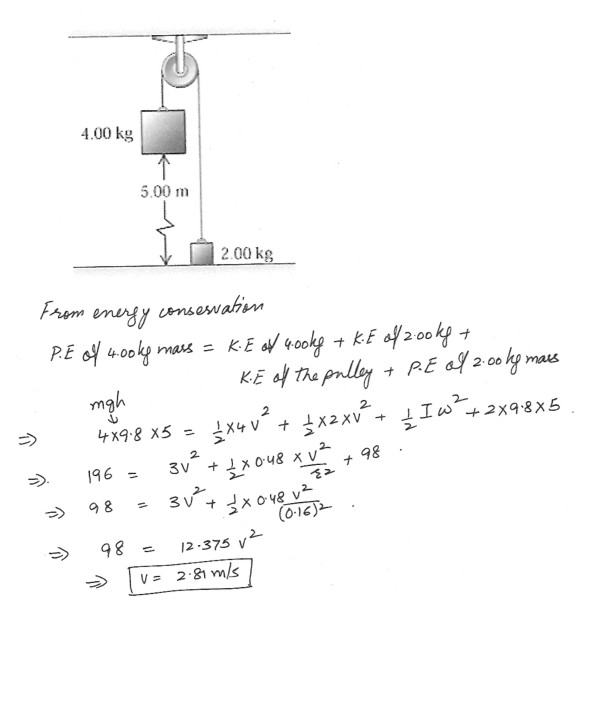 4.00 kg
5.00 m
2.00 kg
From energy conservation
P.E of 4.00kg mass = K.E of 4.00kg + K.E of 2.00kg +
K.E of the pulley + P.E of 2.00kg mass
mgh
↓
⇒ 4×9.8×5 = 1/2×4v² + 1/2×2×v² + 1/2 Iω² + 2×9.8×5 .
⇒. 196 = 3v² + 1/2×0.48×v²/r² + 98 .
⇒ 98 = 3v² + 1/2×0.48 v²/(0.16)² .
⇒ 98 = 12.375 v²
⇒ v = 2.81 m/s